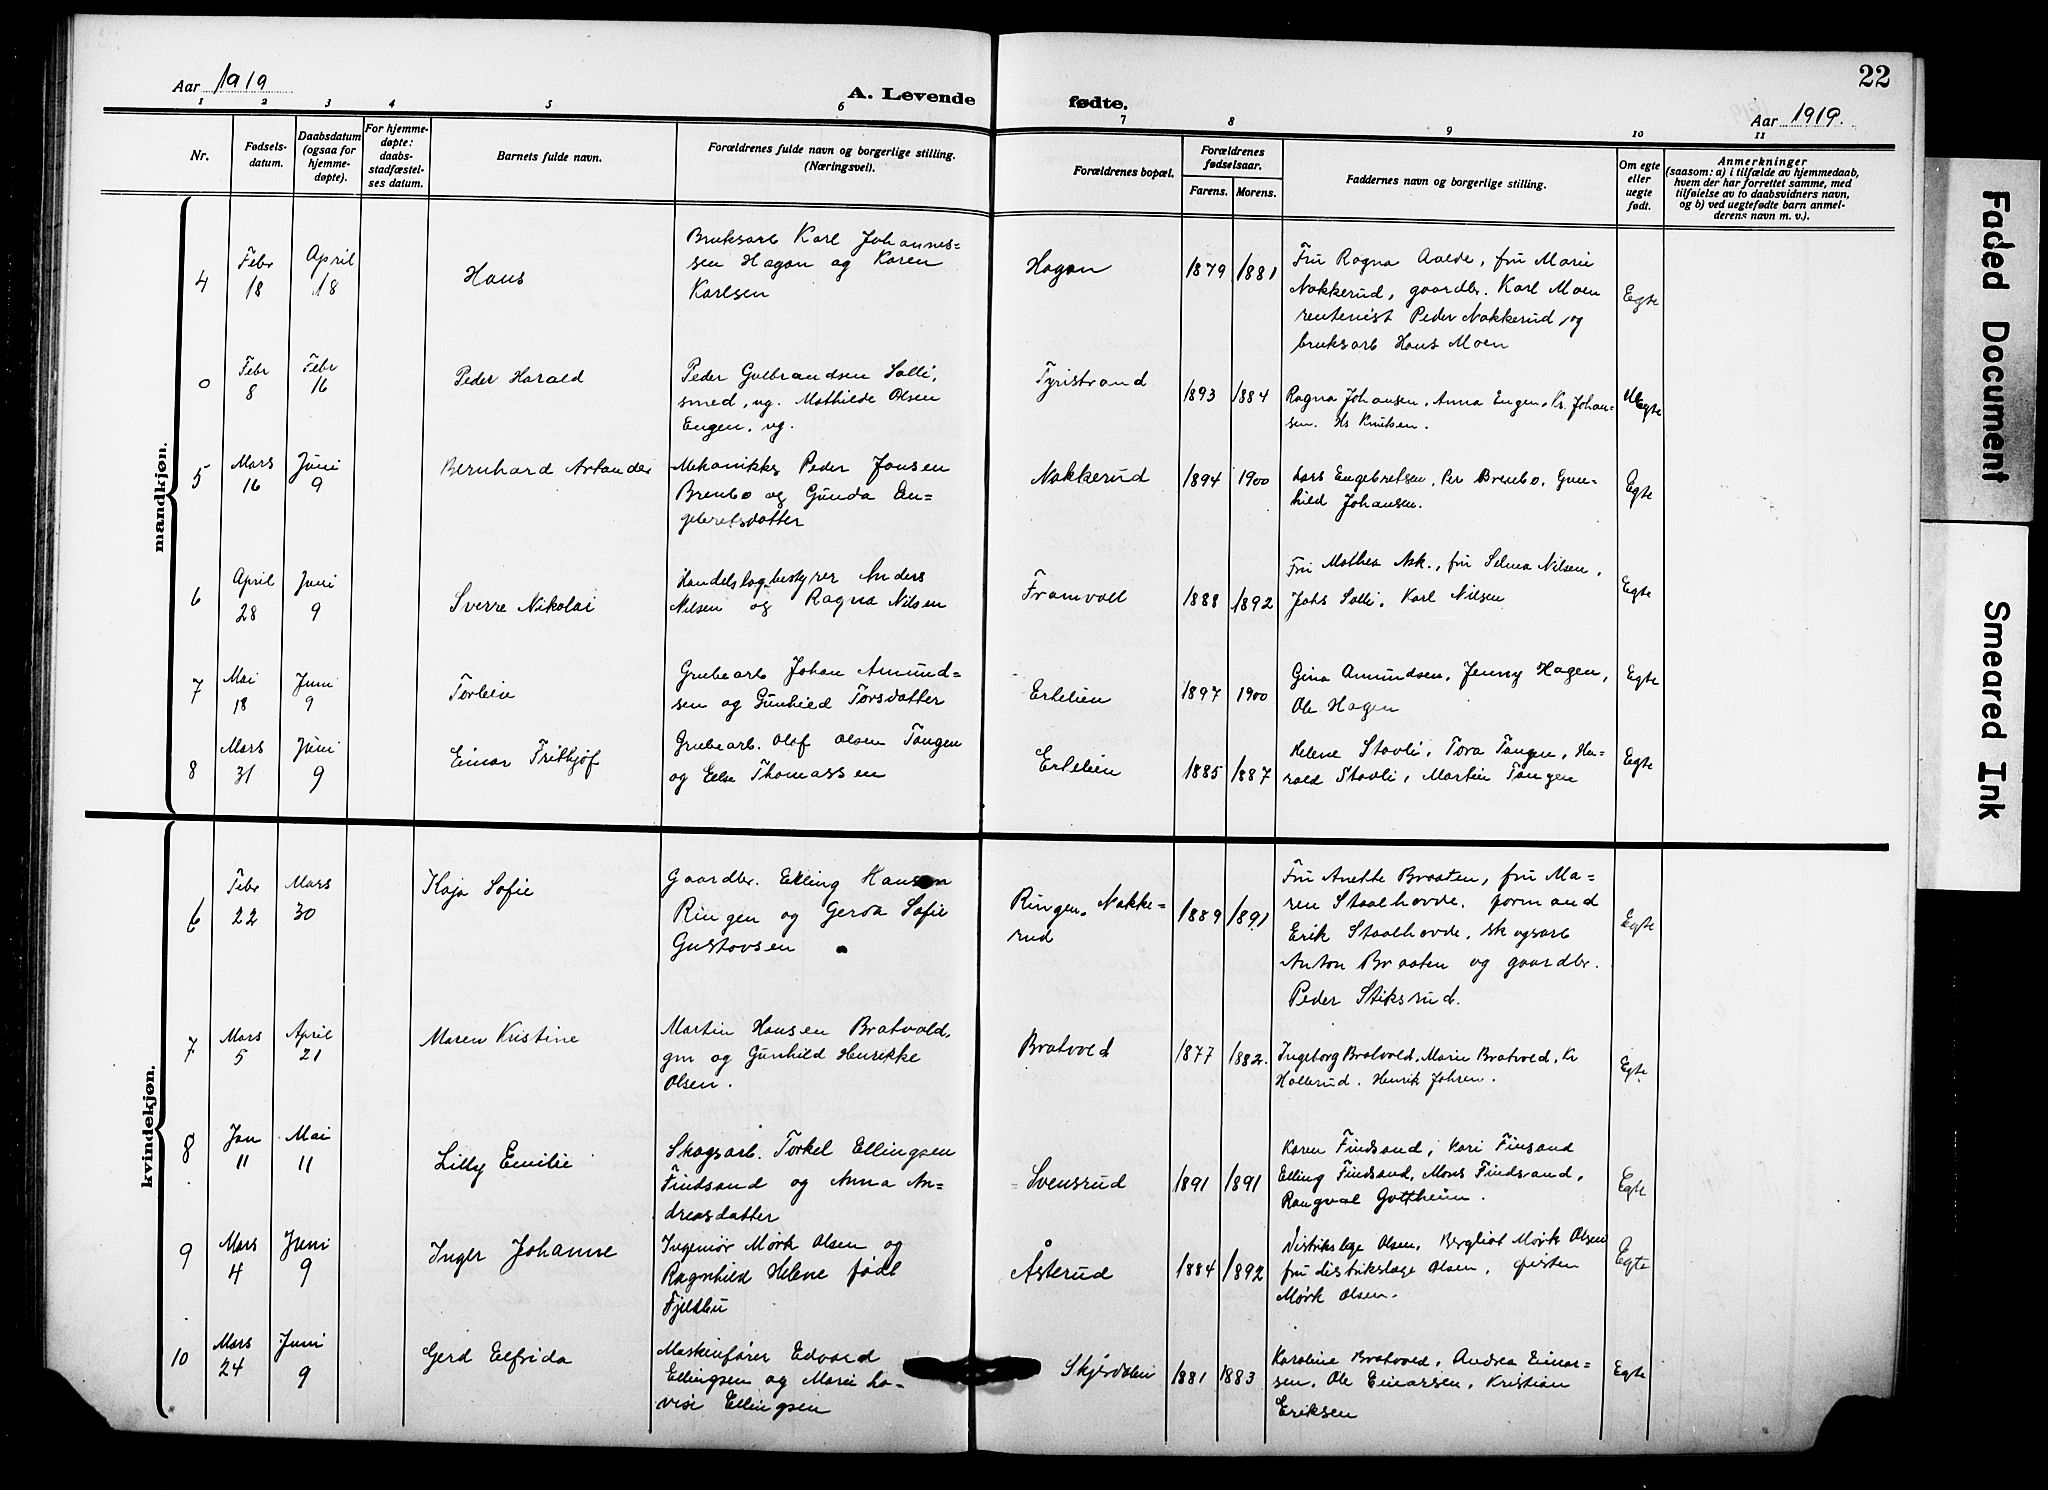 22
Aar 1919
A. Levende fødte.
Aar 1919.
1 2 3 4 5 6 7 8 9 10 11
Nr.
Fødsels-
datum.
Daabsdatum
(ogsaa for
hjemme-
døpte).
For hjemme-
døpte:
daabs-
stadfæstel-
ses datum.
Barnets fulde navn.
Forældrenes fulde navn og borgerlige stilling.
(Næringsvei).
Forældrenes bopæl.
Forældrenes
fødselsaar.
Farens. Morens.
Faddernes navn og borgerlige stilling.
Om egte
eller
uegte
født.
Anmerkninger
(saasom: a) i tilfælde av hjemmedaab,
hvem der har forrettet samme, med
tilføielse av to daabsvidners navn,
og b) ved uegtefødte barn anmel-
derens navn m. v.).
mandkjøn.
4
Febr
18
April
18
Hans
Bruksarb Karl Johannes-
sen Hagan og Karen
Karlsen
Hagan
1879 1881
Fru Ragna Aalde, fru Marie
Nakkerud, gaardbr. Karl Moen
rentenist Peder Nakkerud, og
bruksarb Hans Moen
Egte
0
Febr
8
Febr
16
Peder Harald
Peder Gulbrandsen Solli,
smed, ug. Mathilde Olsen
Engen, ug.
Tyristrand
1893 1884
Ragna Johansen, Anna Engen, Kr. Johan-
sen. Hs Knutsen.
Uegte
5
Mars
16
Juni
9
Bernhard Arlander
Mekanikks Peder Jonsen
Brenbo og Gunda En-
gebretsdatter
Nakkerud
1894 1900
Lars Engebretsen, Per Brenbo, Gun-
hild Johansen.
Egte
6
April
28
Juni
9
Sverre Nikolai
Handelslagbestyrer Anders
Nilsen og Ragna Nilsen
Framvoll
1888 1892
Fru Mathea Ask., fru Selma Nilsen,
Johs Solli, Karl Nilsen
Egte
7
Mai
18
Juni
9
Torbein
Grubearb Johan Amund-
sen og Gunhild Torsdatter
Ertelien
1897 1900
Gina Amundsen, Jenny Hagen,
Ole Hagen
Egte
8
Mars
31
Juni
9
Einar Fritbjof
Grubearb. Olaf Olsen Tangen
og Else Thomassen
Ertelien
1885 1887
Helene Stavli, Tora Tangen, Ha-
rald Stavli, Martin Tangen
Egte
kvindekjøn.
6
Febr
22
Mars
30
Kaja Sofie
Gaardbr. Elling Hansen
Ringen og Gerda Sofie
Gustavsen
Ringen, Nakke-
rud
1889 1891
Fru Anette Braaten, fru Ma-
ren Staalhovde, formand
Erik Staalhovde, skogsarb
Anton Braaten og gaardbr.
Peder Stiksrud.
Egte
7
Mars
5
April
21
Maren Kristine
Martin Hansen Bratvold,
gm og Gunhild Henrikke
Olsen.
Bratvold
1877 1882.
Ingeborg Bratvold, Marie Bratvold, Kr
Hollerud, Henrik Johsen.
Egte
8
Jan
11
Mai
11
Lilly Emilie
Skogsarb. Torkel Ellingsen
Findsand og Anna An-
dreasdatter
Svensrud
1891 1891
Karen Findsand, Kari Finsand
Elling Findsand, Mons Findsand,
Rangval Gottheim.
Egte
9
Mars
4
Juni
9
Inger Johanne
Ingeniør Mørk Olsen og
Ragnhild Helene født
Fjeldbu
Åsterud
1884 1892
Distrikslæge Olsen, Bergliot Mørk Olsen
fru distrikslæge Olsen, Øisten
Mørk Olsen.
Egte
10
Mars
24
Juni
9
Gerd Elfrida
Maskinfører Edvard
Ellingsen og Marie Lo-
vise Ellingsen
Skjørdalen
1881 1883
Karoline Bratvold, Andrea Einar-
sen, Ole Einarsen, Kristian
Eriksen
Egte
Faded Document
Smeared Ink